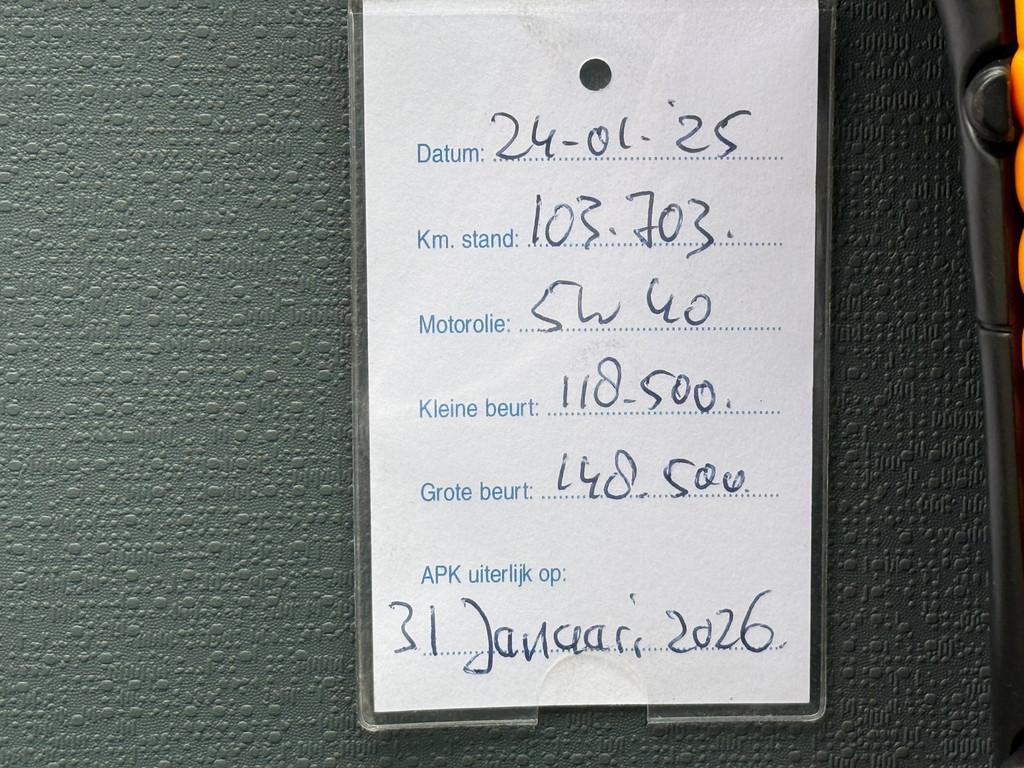 Datum: 24-01-'25
Km. stand: 103.703.
Motorolie: 5w 40
Kleine beurt: 118-500.
Grote beurt: 148.500.
APK uiterlijk op:
31 Januari 2026.